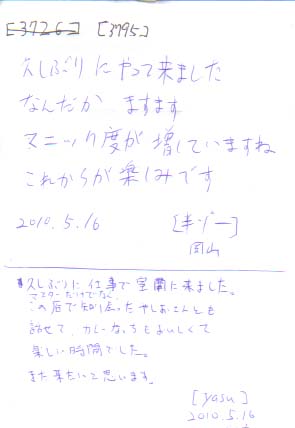 [3726] [3795]
久しぶりにやって来ました
なんだか ますます
マニック度が 増していますね
これからが楽しみです
2010.5.16 [キゾー]
岡山
久しぶりに仕事で室蘭に来ました。
マスターだけでなく、
この店で知り合ったやしおこんとも
話せて、カレーなっちもおいしくて
楽しい時間でした。
また来たいと思います。
[yasu]
2010.5.16